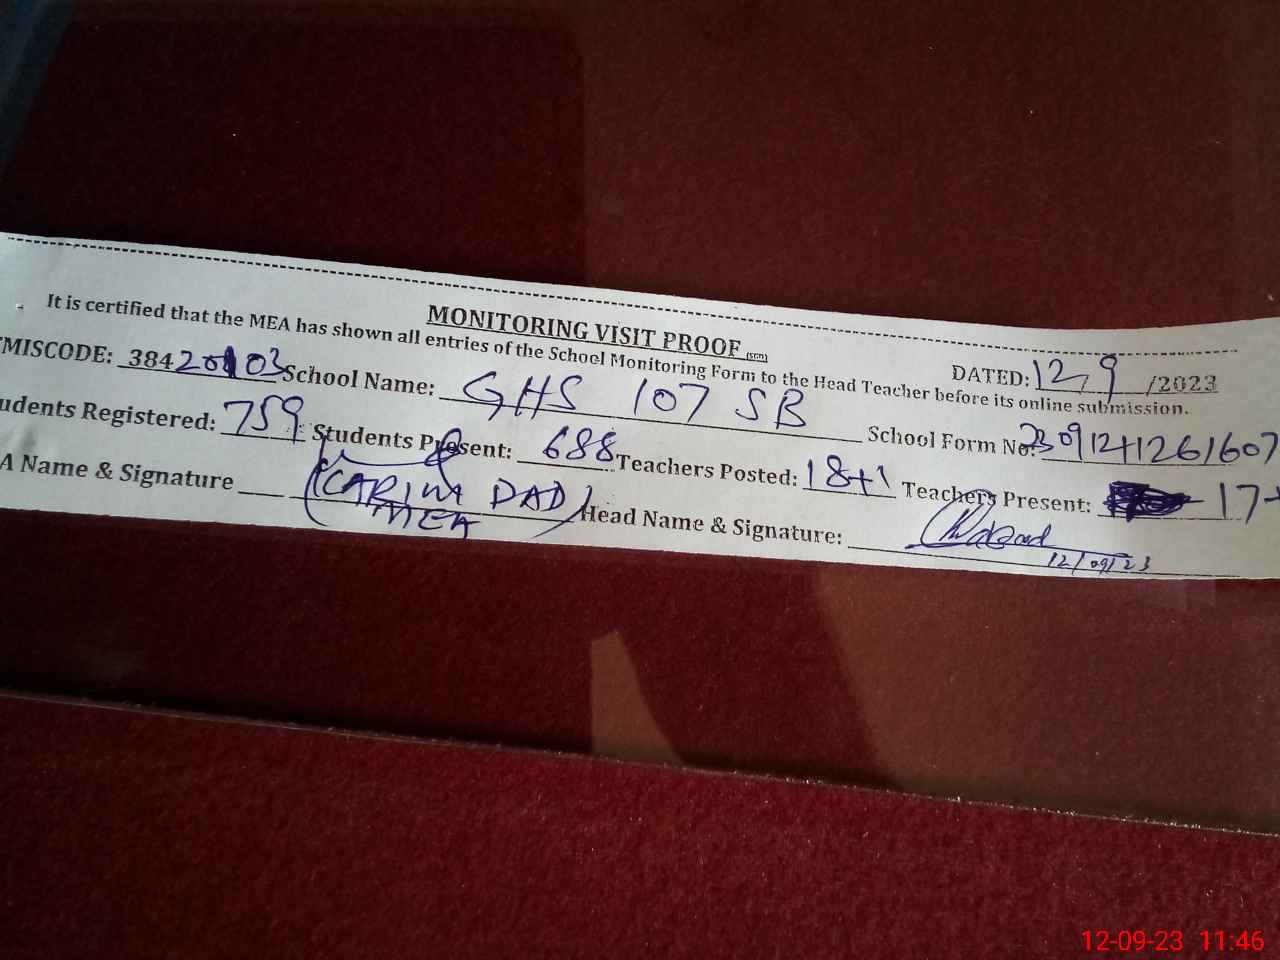 MONITORING VISIT PROOF (SGD)
It is certified that the MEA has shown all entries of the School Monitoring Form to the Head Teacher before its online submission.
DATED: 12, 9 /2023
MISCODE: 38420103 School Name: GHS 107 SB School Form No: 23091241261607
udents Registered: 759 Students Present: 688 Teachers Posted: 18+1 Teachers Present: 17+
A Name & Signature (CARIM DAD) MEA Head Name & Signature:
12/09/23
12-09-23 11:46